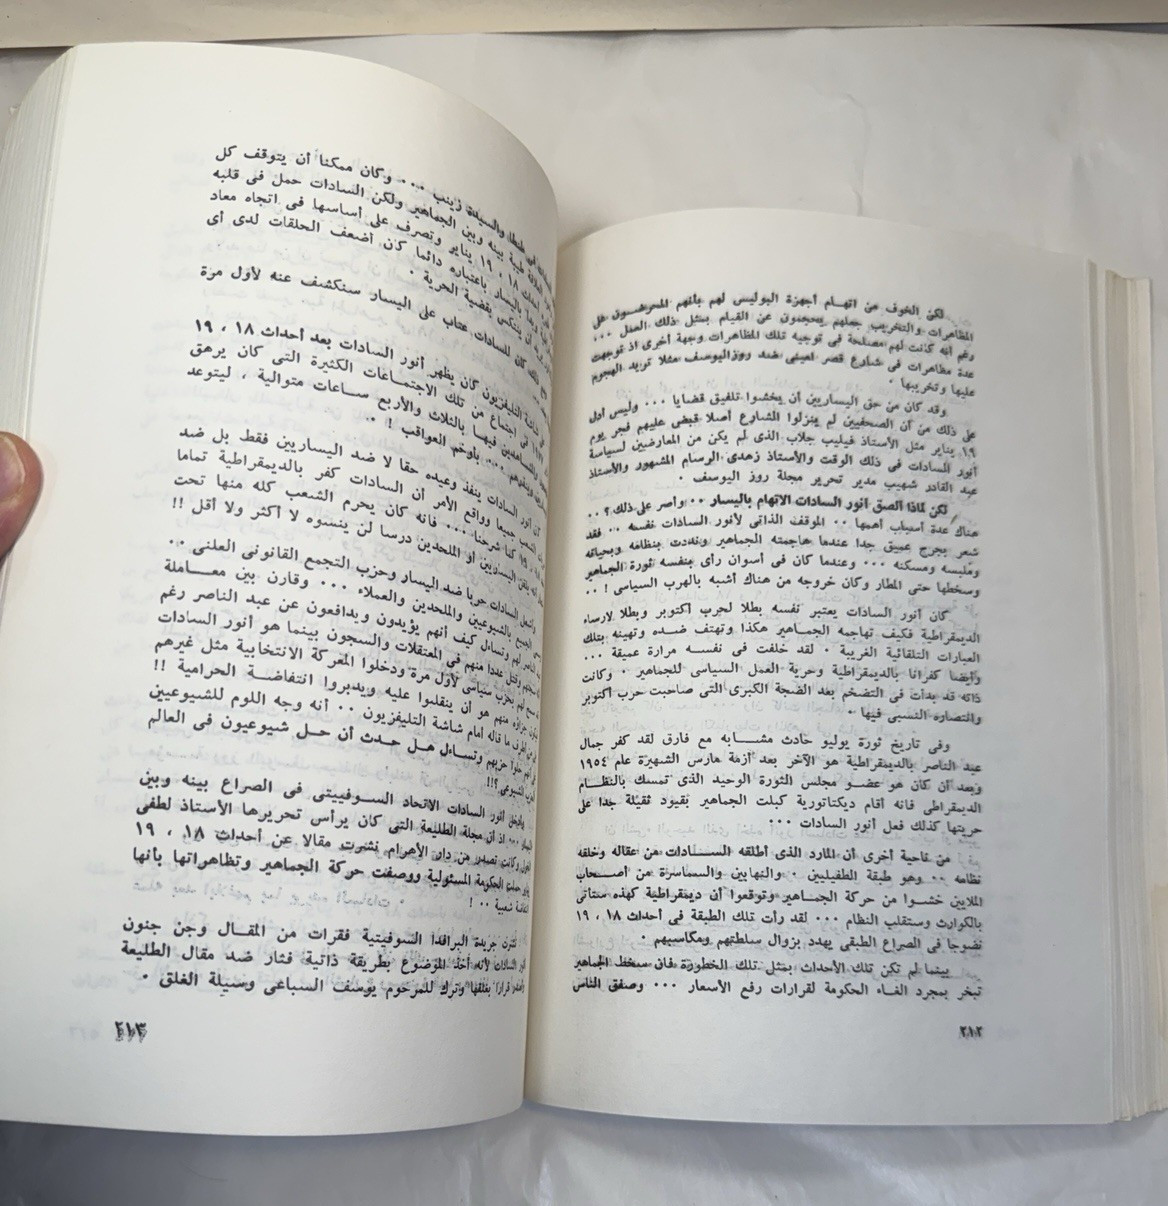 لكن الخوف من اتهام أجهزة البوليس لهم بأنهم المحرضون على
المظاهرات والتخريب جعلهم يحجمون عن القيام بمثل ذلك العمل ...
رغم أنه كانت لهم مصلحة فى توجيه تلك المظاهرات وجهة أخرى اذ توجهت
عدة مظاهرات فى شارع قصر العينى ضد روز اليوسف مثلا تريد الهجوم
عليها وتخريبها .
وقد كان من حق اليساريين أن يخشوا تلفيق قضايا ... وليس أدل
على ذلك من أن الصحفيين لم ينزلوا الشارع أصلا قبض عليهم فجر يوم
١٩ يناير مثل الأستاذ فيليب جلاب الذى لم يكن من المعارضين لسياسة
أنور السادات فى ذلك الوقت والأستاذ زهدى الرسام المشهور والأستاذ
عبد القادر شهيب مدير تحرير مجلة روز اليوسف .
لكن لماذا الصق أنور السادات الاتهام باليسار .. وأصر على ذلك ؟ ..
هناك عدة أسباب أهمها .. الموقف الذاتى لأنور السادات نفسه .. فقد
شعر بجرح عميق جدا عندما هاجمته الجماهير ونددت بنظامه وبحياته
وملبسه ومسكنه ... وعندما كان فى أسوان رأى بنفسه ثورة الجماهير
وسخطها حتى المطار وكان خروجه من هناك أشبه بالهرب السياسى ! ..
كان أنور السادات يعتبر نفسه بطلا لحرب اكتوبر وبطلا لارساء
الديمقراطية فكيف تهاجمه الجماهير هكذا وتهتف ضده وتهينه بتلك
العبارات التلقائية الغريبة . لقد خلفت فى نفسه مرارة عميقة ...
وأيضا كفرانا بالديمقراطية وحرية العمل السياسى للجماهير . وكانت
ذاته قد بدأت فى التضخم بعد الضجة الكبرى التى صاحبت حرب أكتوبر
والنتصاره النسبى فيها .
وفى تاريخ ثورة يوليو حادث مشابه مع فارق لقد كفر جمال
عبد الناصر بالديمقراطية هو الآخر بعد أزمة مارس الشهيرة عام ١٩٥٤
وبعد أن كان هو عضو مجلس الثورة الوحيد الذى تمسك بالنظام
الديمقراطى فانه أقام ديكتاتورية كبلت الجماهير بقيود ثقيلة جدا على
حريتها كذلك فعل أنور السادات ...
من ناحية أخرى أن المارد الذى أطلقه السادات من عقاله وخلقه
نظامه .. وهو طبقة الطفيليين . والنهابين والسماسرة من أصحاب
الملايين خشوا من حركة الجماهير وتوقعوا أن ديمقراطية كهذه ستأتى
بالكوارث وستقلب النظام ... لقد رأت تلك الطبقة فى أحداث ١٨ ، ١٩
نضوجا فى الصراع الطبقى يهدد بزوال سلطتهم ومكاسبهم .
بينما لم تكن تلك الأحداث بمثل تلك الخطورة فان سخط الجماهير
تبخر بمجرد الغاء الحكومة لقرارات رفع الأسعار ... وصفق الناس
٢١٢
والسيدة زينب ... وكان ممكنا أن يتوقف كل
طيبة بينه وبين الجماهير ولكن السادات حمل فى قلبه
أحداث ١٨ ، ١٩ يناير وتصرف على أساسها فى اتجاه معاد
باليسار باعتباره دائما كان أضعف الحلقات لدى أى
أن ينتكس بقضية الحرية .
ذلك كان للسادات عتاب على اليسار سنكشف عنه لأول مرة
شاشة التليفزيون كان يظهر أنور السادات بعد أحداث ١٨ ، ١٩
فى اجتماع من تلك الاجتماعات الكثيرة التى كان يرهق
والمشاهدين فيها بالثلاث والأربع ساعات متوالية ، ليتوعد
... بأوخم العواقب ! .
كان أنور السادات ينفذ وعيده حقا لا ضد اليساريين فقط بل ضد
الشعب جميعا وواقع الأمر أن السادات كفر بالديمقراطية تماما
كما شرحنا ... فانه كان يحرم الشعب كله منها تحت
يلقن اليساريين أو الملحدين درسا لن ينسوه لا أكثر ولا أقل !!
السادات حربا ضد اليسار وحزب التجمع القانونى العلنى ..
الجميع بالشيوعيين والملحدين والعملاء ... وقارن بين معاملة
لهم وتساءل كيف أنهم يؤيدون ويدافعون عن عبد الناصر رغم
وقتل عددا منهم فى المعتقلات والسجون بينما هو أنور السادات
لهم بحزب سياسى لأول مرة ودخلوا المعركة الانتخابية مثل غيرهم
جزاؤه منهم هو أن ينقلبوا عليه ويدبروا انتفاضة الحرامية !!
ما قاله أمام شاشة التليفزيون .. أنه وجه اللوم للشيوعيين
حلوا حزبهم وتساءل هل حدث أن حل شيوعيون فى العالم
الشيوعى ؟!!
أنور السادات الاتحاد السوفييتى فى الصراع بينه وبين
... اذ أن مجلة الطليعة التى كان يرأس تحريرها الأستاذ لطفى
وكانت تصدر من دار الأهرام نشرت مقالا عن أحداث ١٨ ، ١٩
حملت الحكومة المسئولية ووصفت حركة الجماهير وتظاهراتها بأنها
شعبية .. !
نشرت جريدة البرافدا السوفيتية فقرات من المقال وجن جنون
السادات لأنه أخذ الموضوع بطريقة ذاتية فثار ضد مقال الطليعة
قرارا بغلقها وترك للمرحوم يوسف السباعى وسيلة الغلق .
٢١٣